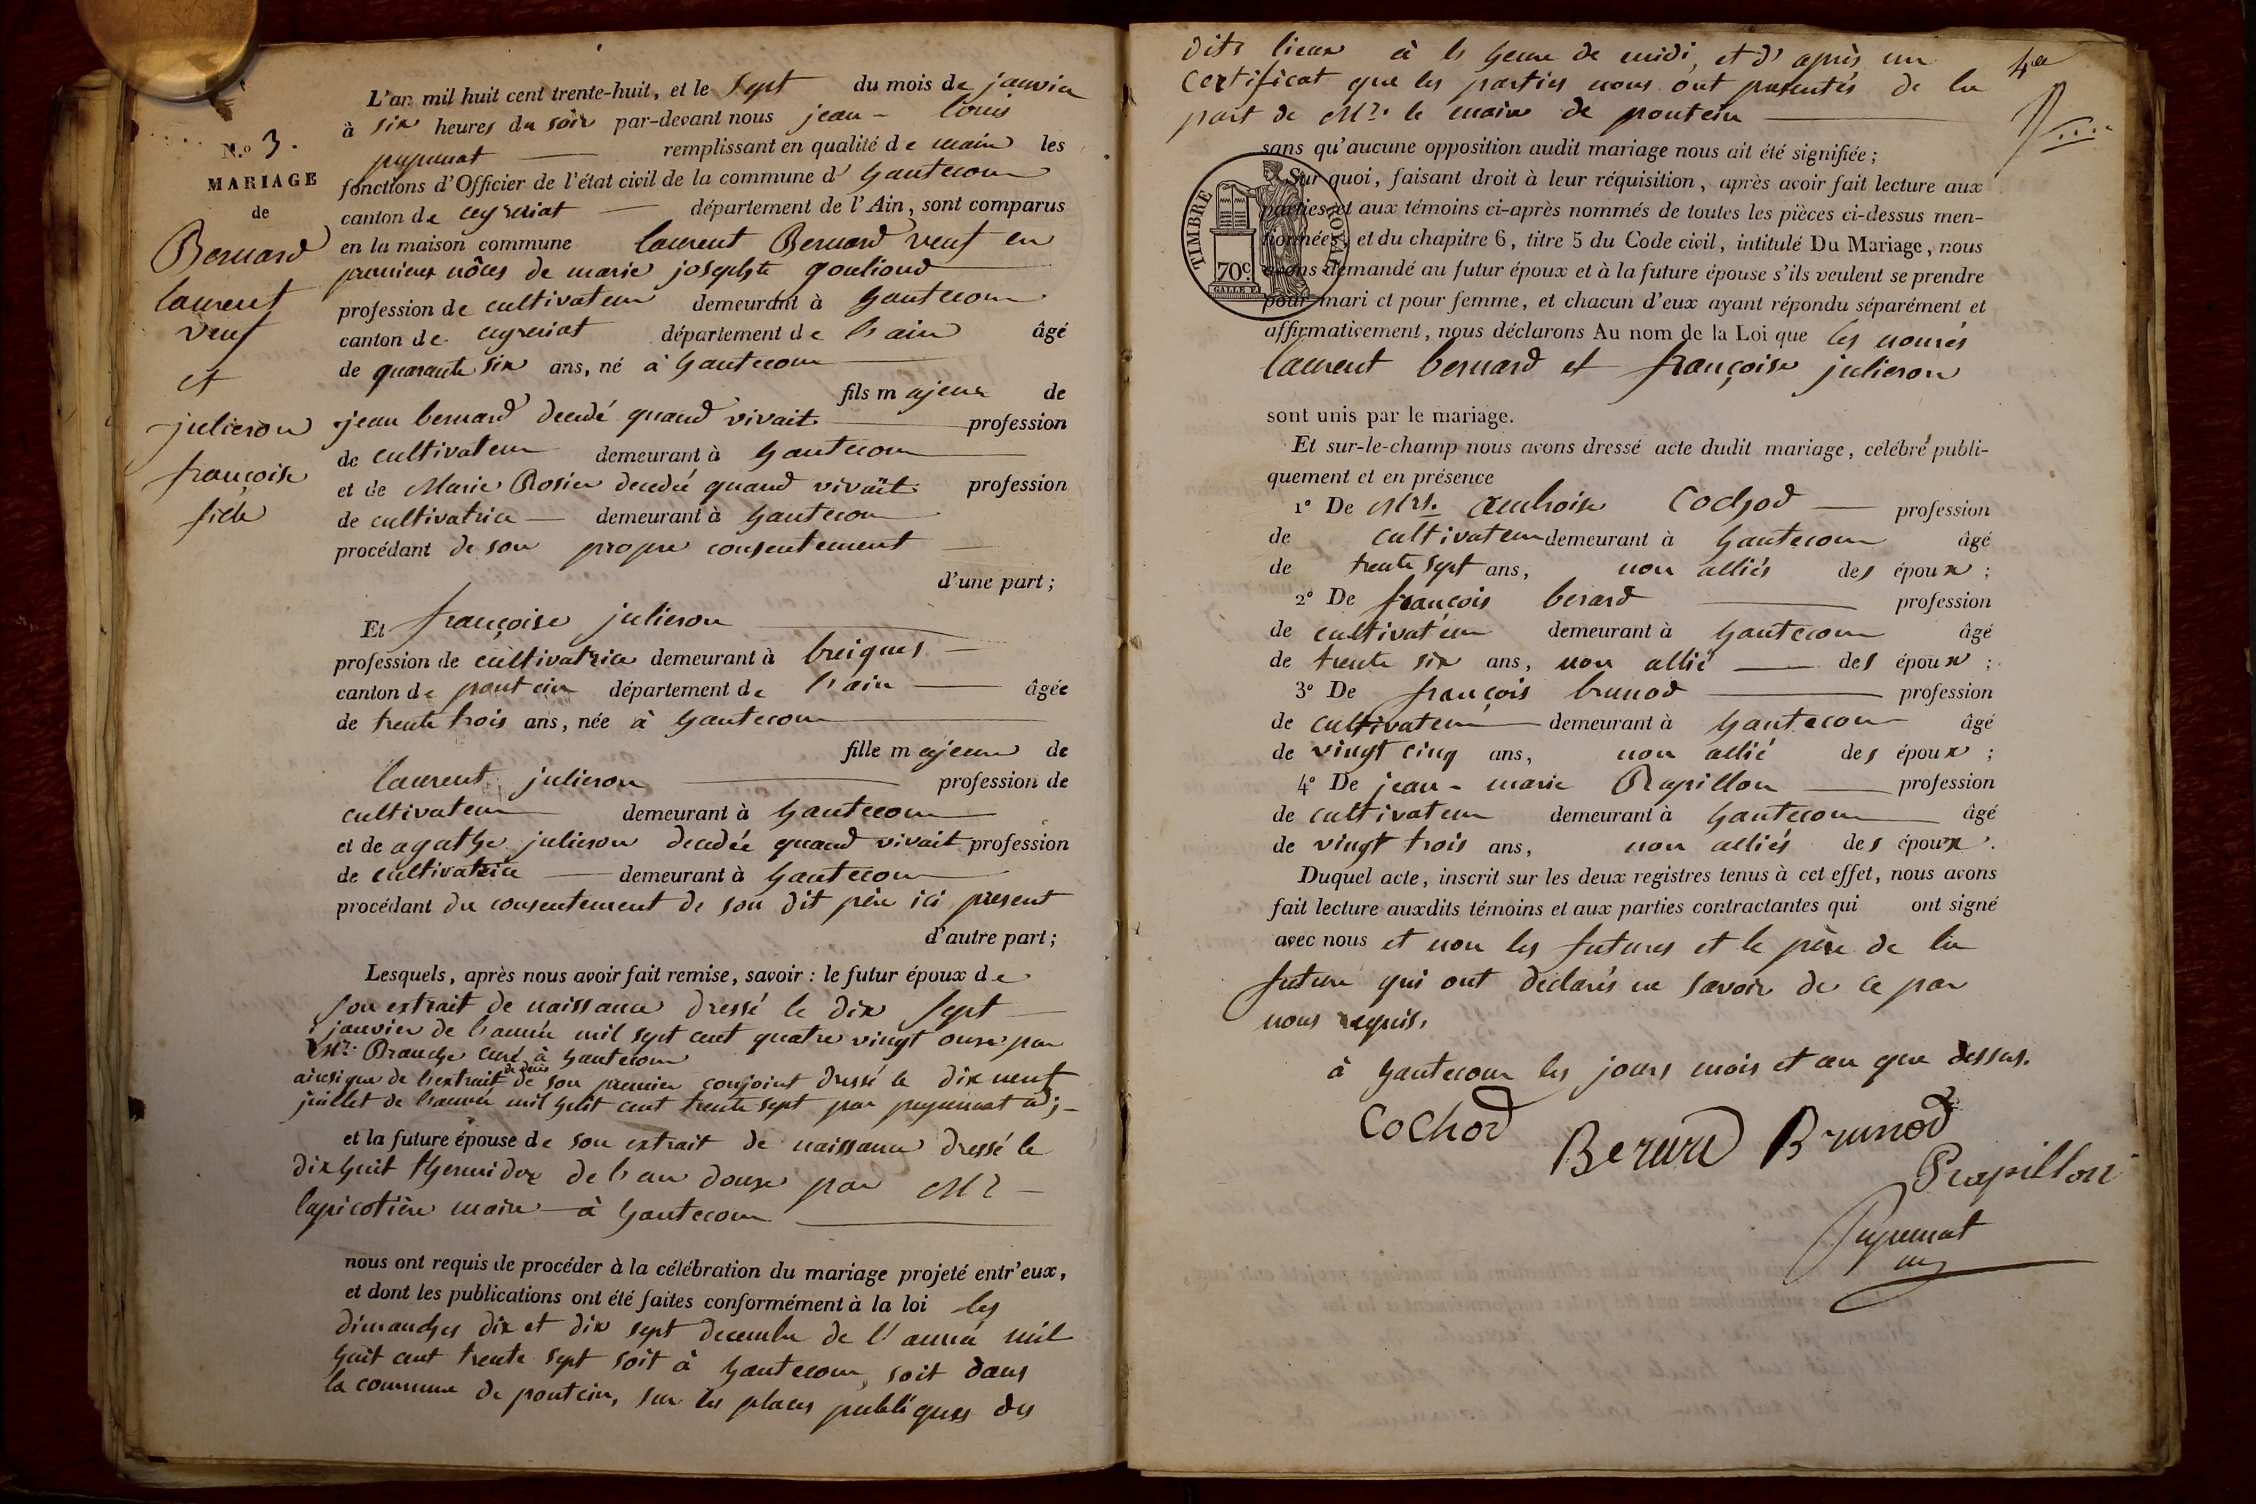 L'an mil huit cent trente-huit, et le sept du mois de janvier
à six heures du soir par-devant nous jean - louis
puyument remplissant en qualité de maire les
N.o 3.
MARIAGE
de
Bernard
laurent
veuf
et
julieron
françoise
fille
fonctions d'Officier de l'état civil de la commune d' hautecour
canton de ceyzeriat département de l'Ain, sont comparus
en la maison commune laurent Bernard veuf en
premieres nôces de marie josephte goulioud
profession de cultivateur demeurant à hautecour
canton de ceyzeriat département de l'ain âgé
de quarante six ans, né à hautecour
fils majeur de
jean bernard decedé quand vivait profession
de cultivateur demeurant à hautecour
et de Marie Rosier decedée quand vivait profession
de cultivatrice demeurant à hautecour
procédant de son propre consentement
d'une part;
Et françoise julieron
profession de cultivatrice demeurant à breignes
canton de pont ain département de l'ain âgée
de trente trois ans, née à hautecour
fille majeure de
laurent julieron profession de
cultivateur demeurant à hautecour
et de agathe julieron decedée quand vivait profession
de cultivatrice demeurant à hautecour
procédant du consentement de son dit père ici present
d'autre part;
Lesquels, après nous avoir fait remise, savoir: le futur époux de
son extrait de naissance dressé le dix sept
janvier de l'année mil sept cent quatre vingt onze par
Mr. Branche curé à hautecour
ainsi que de l'extrait de décès de son premier conjoint dressé le dix neuf
juillet de l'année mil huit cent trente sept par puyument adj -
et la future épouse de son extrait de naissance dressé le
dix huit thermidor de l'an douze par Mr
lapicotière maire à hautecour
nous ont requis de procéder à la célébration du mariage projeté entr'eux,
et dont les publications ont été faites conformément à la loi les
dimanches dix et dix sept decembre de l'année mil
huit cent trente sept soit à hautecour, soit dans
la commune de pontein, sur les places publiques des
dits lieux à l'heure de midi, et d'après un
certificat que les parties nous ont presentés de la
part de Mr. le maire de pontein
4e
sans qu'aucune opposition audit mariage nous ait été signifiée;
Sur quoi, faisant droit à leur réquisition, après avoir fait lecture aux
parties et aux témoins ci-après nommés de toutes les pièces ci-dessus men-
tionnées, et du chapitre 6, titre 5 du Code civil, intitulé Du Mariage, nous
avons demandé au futur époux et à la future épouse s'ils veulent se prendre
pour mari et pour femme, et chacun d'eux ayant répondu séparément et
affirmativement, nous déclarons Au nom de la Loi que les només
TIMBRE ROYAL
70c.
laurent bernard et françoise julieron
sont unis par le mariage.
Et sur-le-champ nous avons dressé acte dudit mariage, célébré publi-
quement et en présence
1o De Mrs. ambroise Cochod profession
de cultivateur demeurant à hautecour âgé
de trente sept ans, non alliés des époux;
2o De françois berard profession
de cultivateur demeurant à hautecour âgé
de trente six ans, non allié des époux;
3o De françois brunod profession
de cultivateur demeurant à hautecour âgé
de vingt cinq ans, non allié des époux;
4o De jean - marie Rapillon profession
de cultivateur demeurant à hautecour âgé
de vingt trois ans, non alliés des époux.
Duquel acte, inscrit sur les deux registres tenus à cet effet, nous avons
fait lecture auxdits témoins et aux parties contractantes qui ont signé
avec nous et non les futures et le père de la
future qui ont déclarés ne savoir de ce par
nous requis.
à hautecour les jours mois et an que dessus.
Cochod
Berard Brunod
Rapillon
Puyument